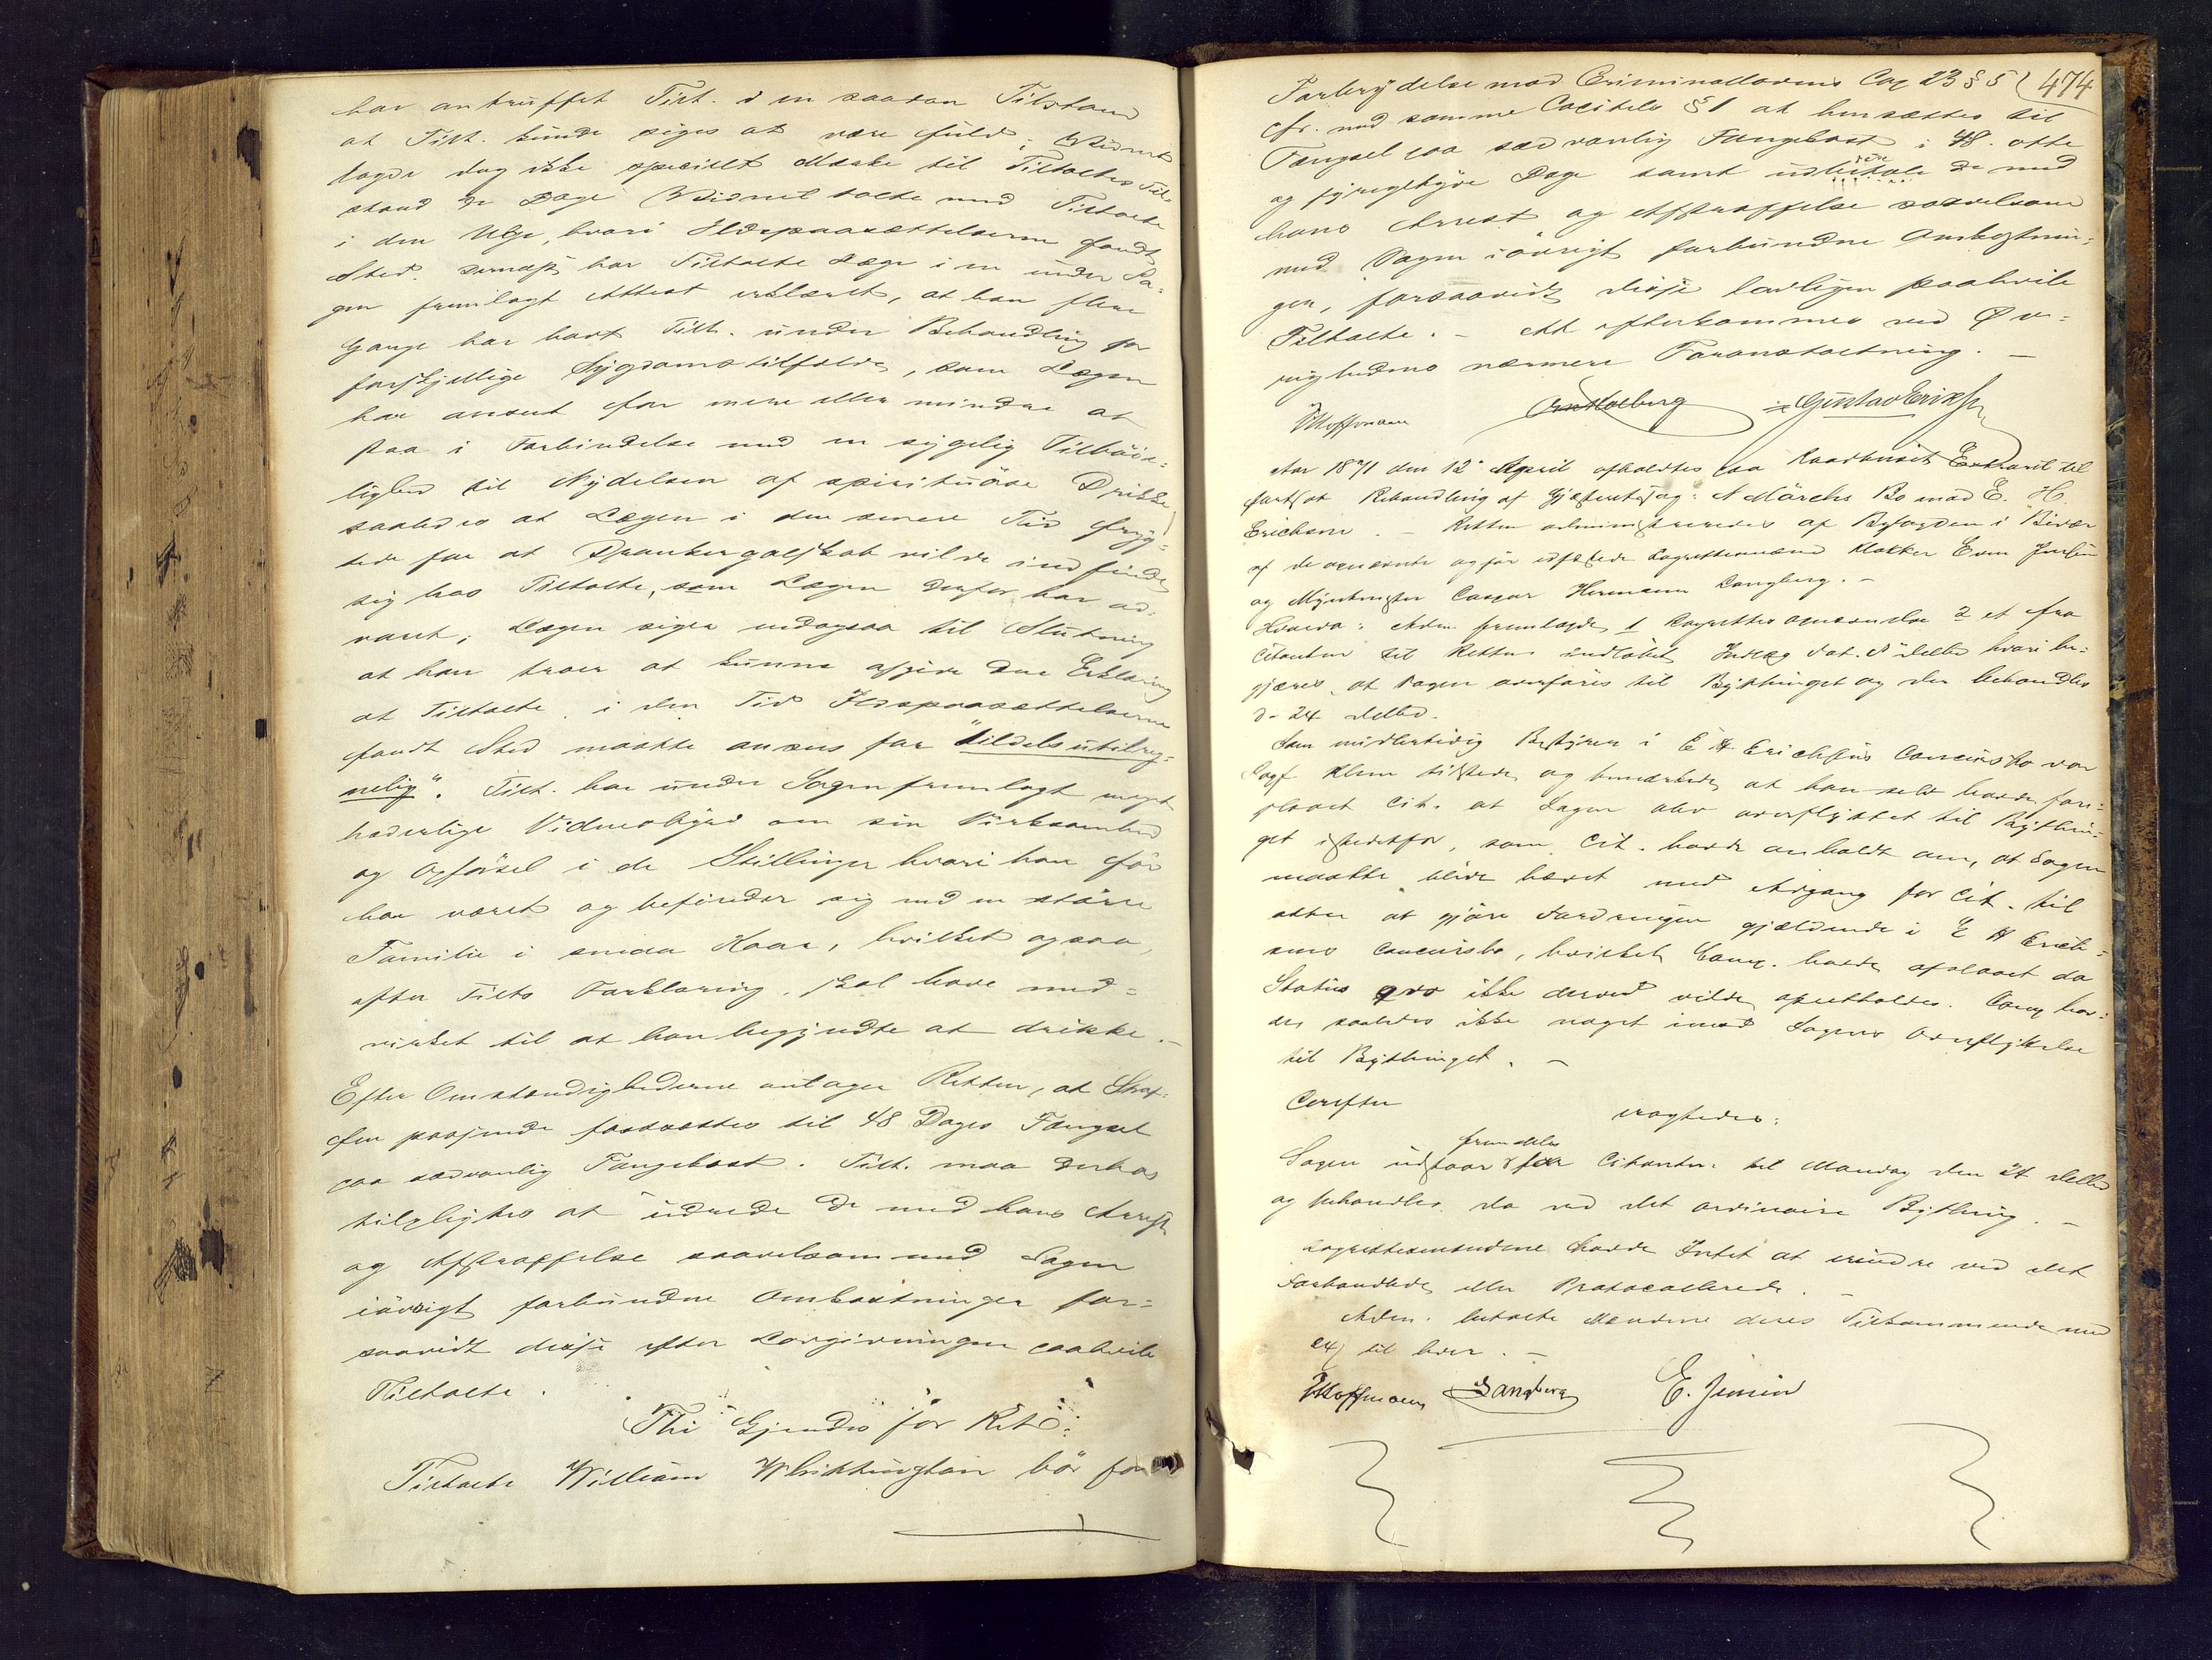 har antruffet Tilt. i en saadan Tilstand
at Tilt. kunde siges at være fuld; Vidnet
lagde dog ikke specielt Mærke til Tiltaltes Til-
stand de Dage Vidnet talte med Tiltalte
i den Uge, hvori Ildspaasættelserne fandt
Sted. Dernæst har Tiltalte Læge i en under Sa-
gen fremlagt Attest erklæret, at han flere
Gange har havt Tilt. under Behandling for
forskjellige Sygdomstilfælde, som Lægen
har anseet for mere eller mindre at
staa i Forbindelse med en sygelig Tilböie-
lighed til Nydelsen af spirituöse Drikke
saaledes at Lægen i den senere Tid fryg-
tede for at Drankergalskab vilde indfinde
sig hos Tiltalte, som Lægen derfor har ad-
varet; Lægen siger endogsaa til Slutning
at han troer at kunne afgive den Erklæring
at Tiltalte i den Tid Ildspaasættelserne
fandt Sted maatte ansees for "tildels utilreg-
nelig". Tilt. har under Sagen fremlagt meget
hæderlige Vidnesbyrd om sin Virksomhed
og Opförsel i de Stillinger hvori han för
har været og befinder sig med en större
Familie i smaa Kaar, hvilket ogsaa,
efter Tilts Forklaring, skal have med-
virket til at han begyndte at drikke.-
Efter Omstændighederne antager Retten, at Straf-
fen passende fastsættes til 48 Dages Fængsel
paa sædvanlig Fangekost. Tilt. maa derhos
tilpligtes at udrede de med hans Arrest
og Afstraffelse saavelsom med Sagen
iövrigt forbundne Omkostninger for-
saavidt disse efter Lovgivningen paahvile
Tiltalte.
Thi Kjendes for Ret:
Tiltalte William Whittington bör for
474
Forbrydelse mod Criminallovens Cap 23 § 5
cfr. med samme Capitels § 1 at hensættes til
Fængsel paa sædvanlig Fangekost i 48 otte
og fyrgetyve Dage samt udrede de med
hans Arrest og Afstraffelse saavelsom
med Sagen iövrigt forbundne Omkostnin-
ger, forsaavidt disse lovligen paahvile
Tiltalte. - At efterkommes ved Øv-
righedens nærmere Foranstaltning. -
Hoffmann Gustav Eriksen
Aar 1871 den 12 April afholdtes paa Raadhuset Extraret til
fortsat Behandling af Gjæsteretssag: N Mörchs Bo mod E. H.
Erichsen. - Retten administreredes af Byfogden i Bivær
af de opnævnte og för edfæstede Lagrettesmænd Klokker Even Jensen
og Myntmester Caspar Hermann Langberg. -
Hvorda: Adm. fremlagde 1 Lagrettes opnævnelse 2 et fra
Citanten til Retten indlöbet Indlæg dat. hvori be-
gjæres, at Sagen overföres til Bythinget og der behandles
d. 24 dettes.
Som midlertidig Bestyrer i E H Erichsens Concursbo var
Sagf Klem tilstede og bemærkede, at han selv havde fore-
slaaet Cit. at Sagen blev overflyttet til Bythin-
get istedetfor, som Cit. havde anholdt om, at Sagen
maatte blive hævet med Adgang for Cit. til
atter at gjöre Fordringen gjældende i E H Erich-
sens Concursbo, hvilket Comp. havde afslaaet da
Status quo ikke derved vilde opretholdes. Comp hav-
de saaledes ikke noget imod Sagens Overflyttelse
til Bythinget. -
Derefter eragtedes:
Sagen udstaar fremdeles for Citanten til Mandag den 24 dettes
og behandles da ved det ordinaire Bything. -
Lagrettesmændene havde Intet at erindre ved det
Forhandlede eller Protocollerede. -
Adm. betalte Mændene deres Tilkommende med
24 til hver. -
Hoffmann Langberg E. Jensen